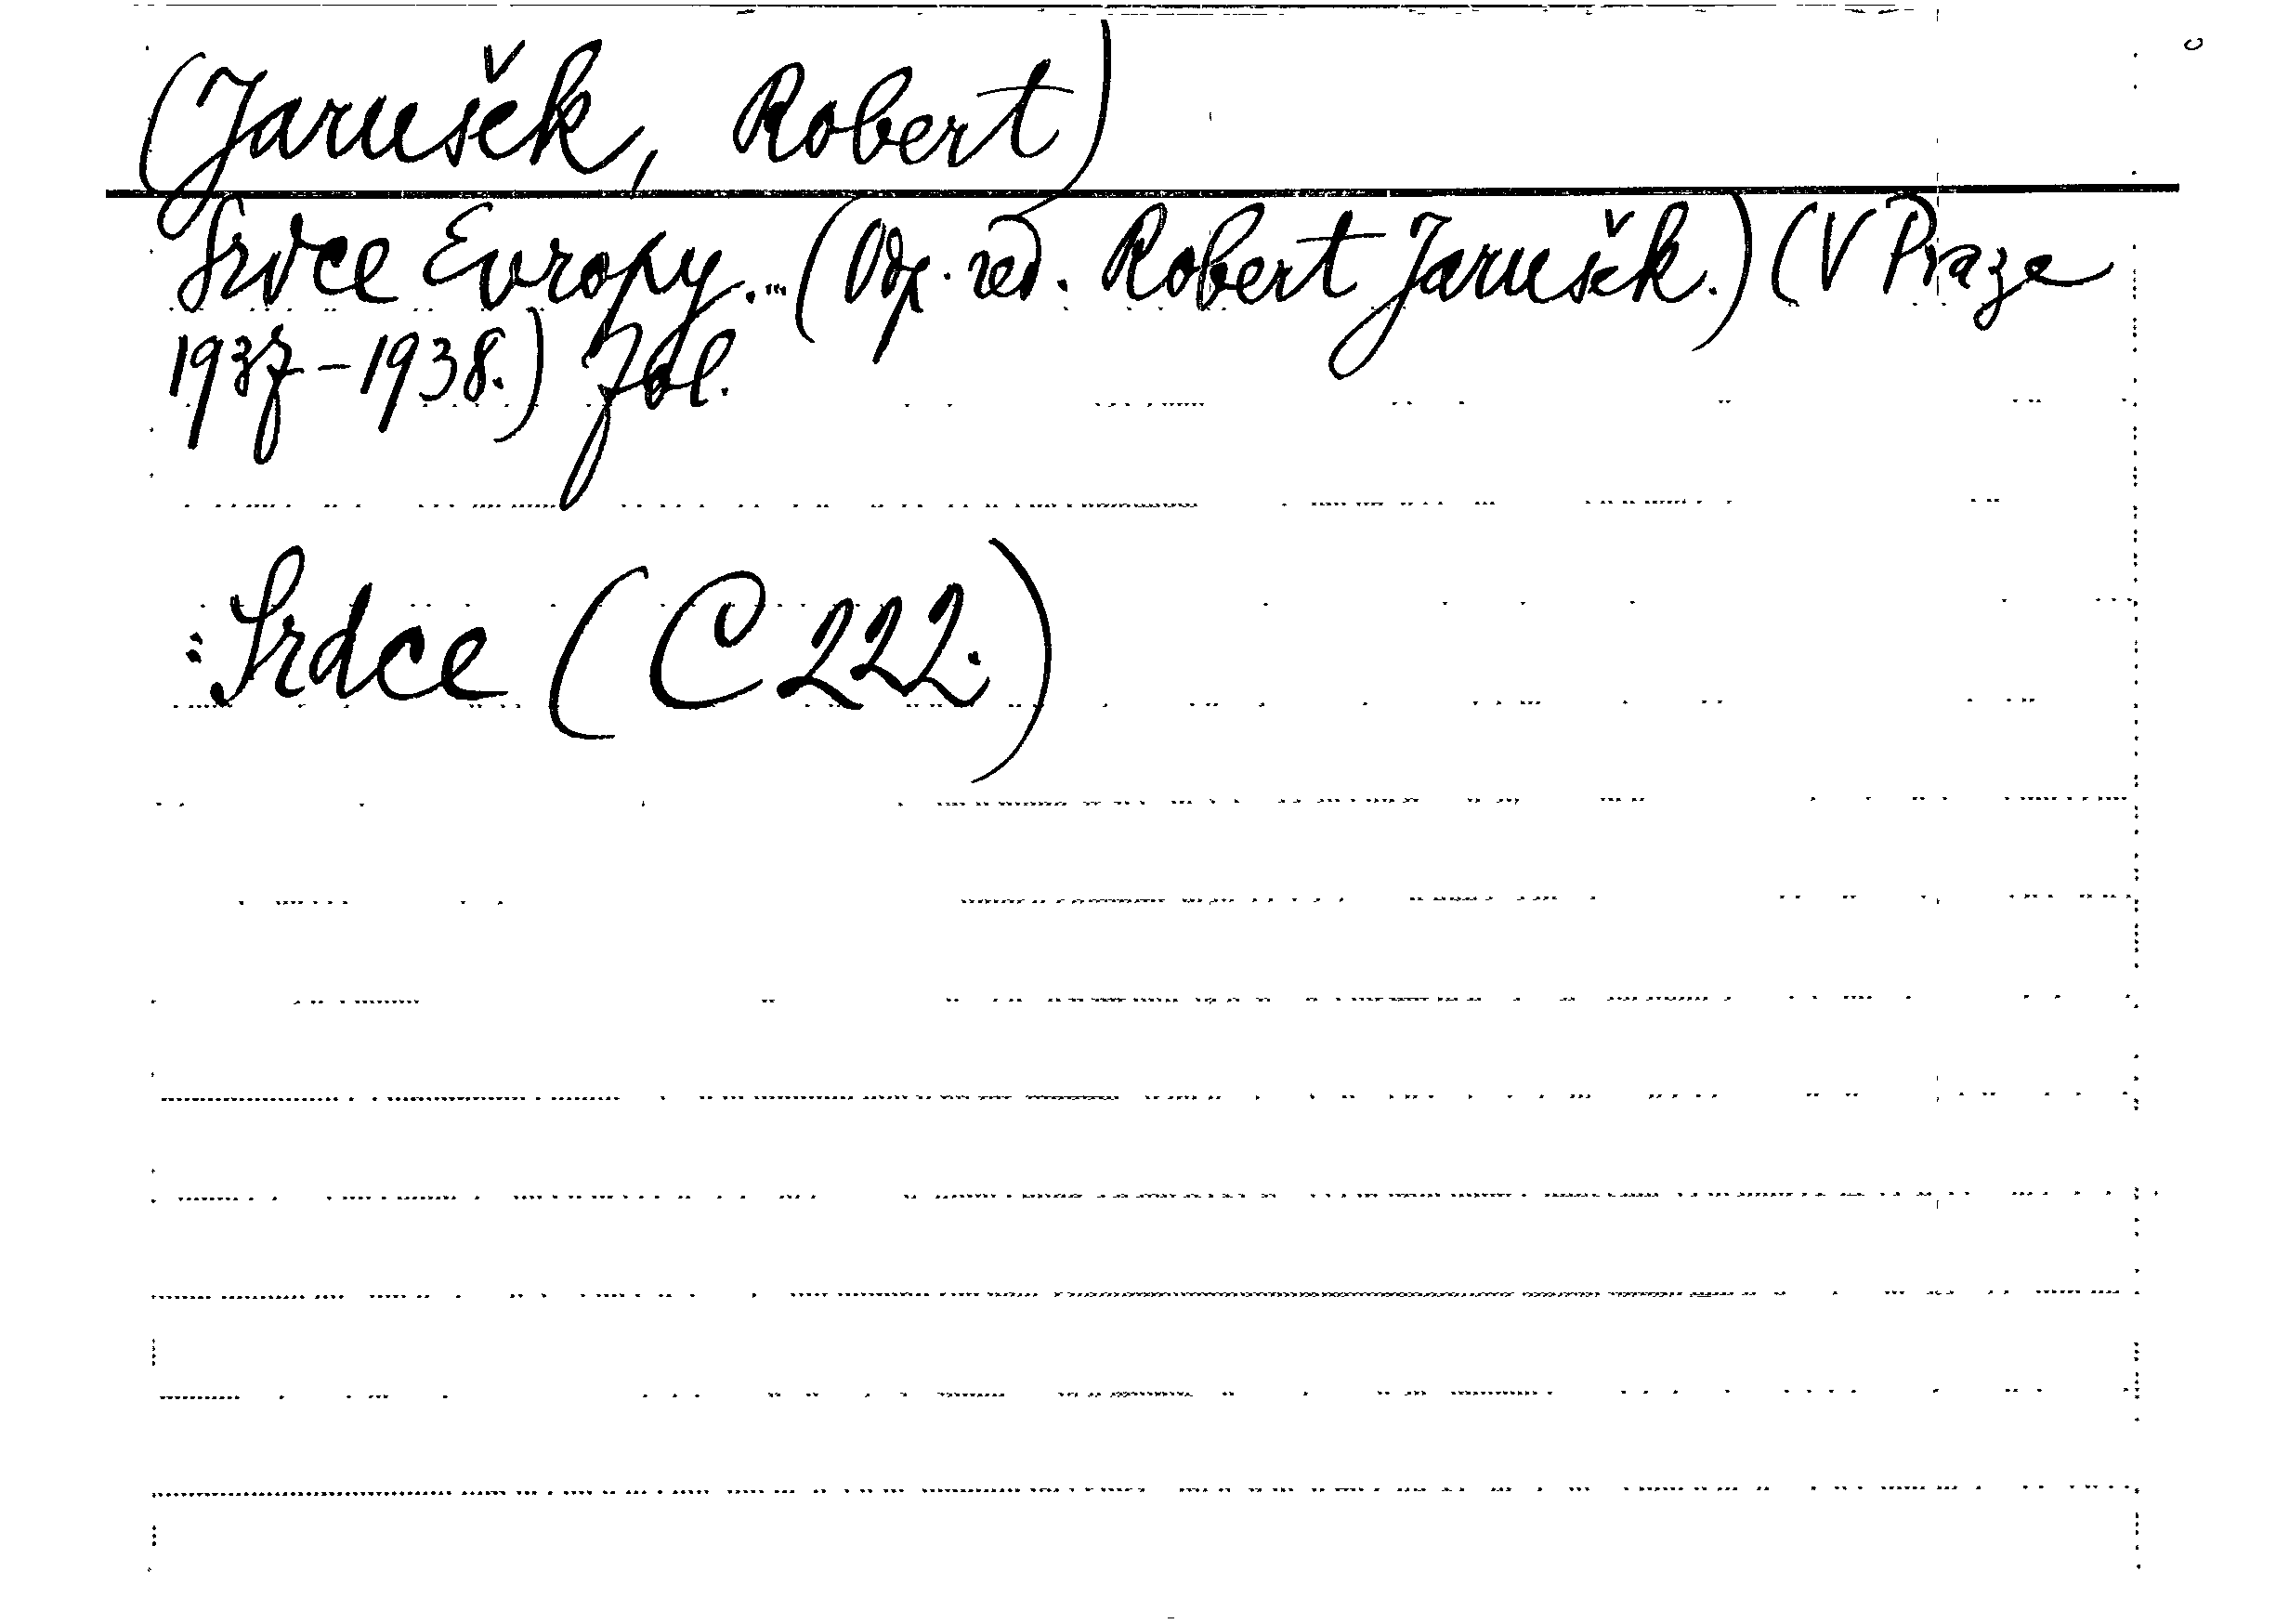 (Jarušek, Robert)
Srdce Evropy... (Odp. red. Robert Jarušek.) (V Praze
1937-1938.) fol.
:Srdce (C 222.)